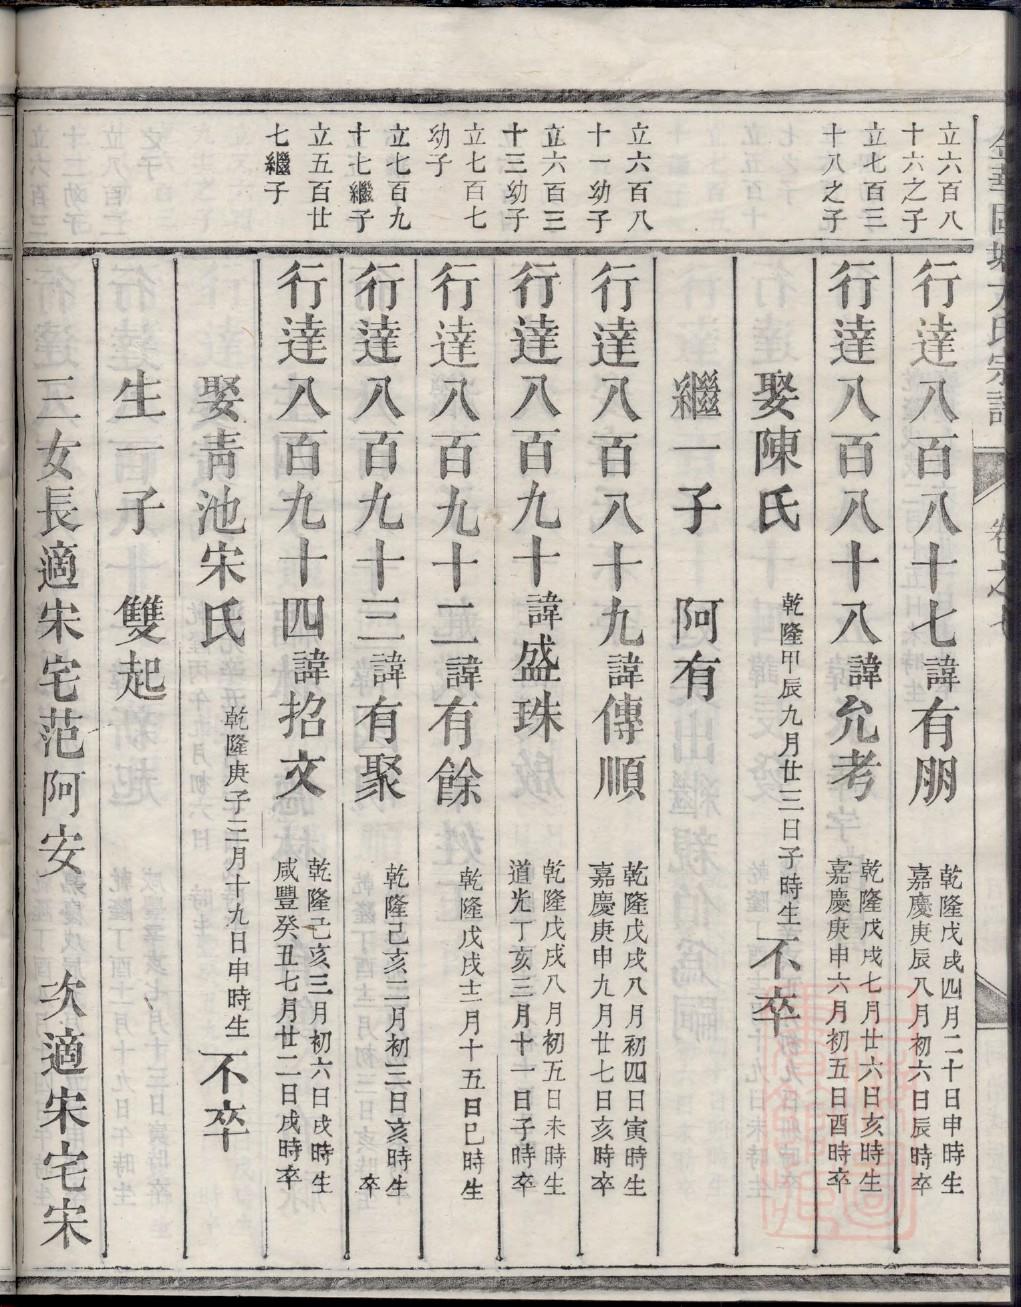 立六百八
十六之子
行達八百八十七諱有朋
乾隆戊戌四月二十日申時生
嘉慶庚辰八月初六日辰時卒
立七百三
十八之子
行達八百八十八諱允考
乾隆戊戌七月廿六日亥時生
嘉慶庚申六月初五日酉時卒
娶陳氏 乾隆甲辰九月廿三日子時生 不卒
繼一子 阿有
立六百八
十一幼子
行達八百八十九諱傳順
乾隆戊戌八月初四日寅時生
嘉慶庚申九月廿七日亥時卒
立六百三
十三幼子
行達八百九十諱盛珠
乾隆戊戌八月初五日未時生
道光丁亥三月十一日子時卒
立七百七
幼子
行達八百九十二諱有餘
乾隆戊戌十二月十五日巳時生
立七百九
十七繼子
行達八百九十三諱有聚
乾隆己亥二月初三日亥時生
卒
立五百廿
七繼子
行達八百九十四諱招文
乾隆己亥三月初六日戌時生
咸豐癸丑七月廿二日戌時卒
娶青池宋氏 乾隆庚子三月十九日申時生 不卒
生一子 雙起
三女長適宋宅范阿安 次適宋宅宋